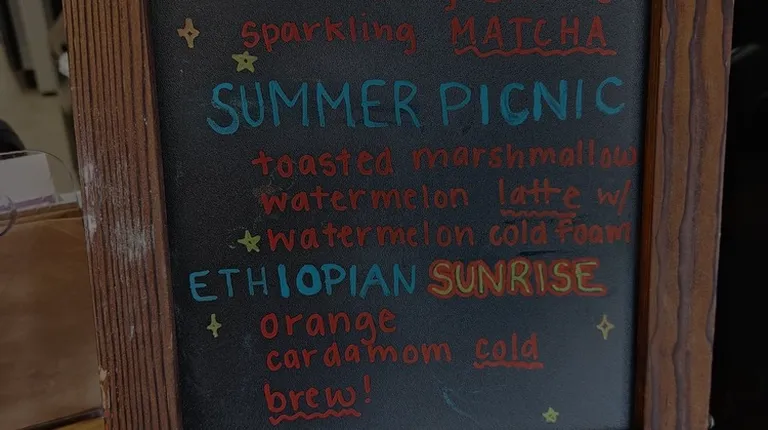 sparkling MATCHA
SUMMER PICNIC
toasted marshmallow
watermelon latte w/
watermelon cold foam
ETHIOPIAN SUNRISE
orange
cardamom cold
brew!